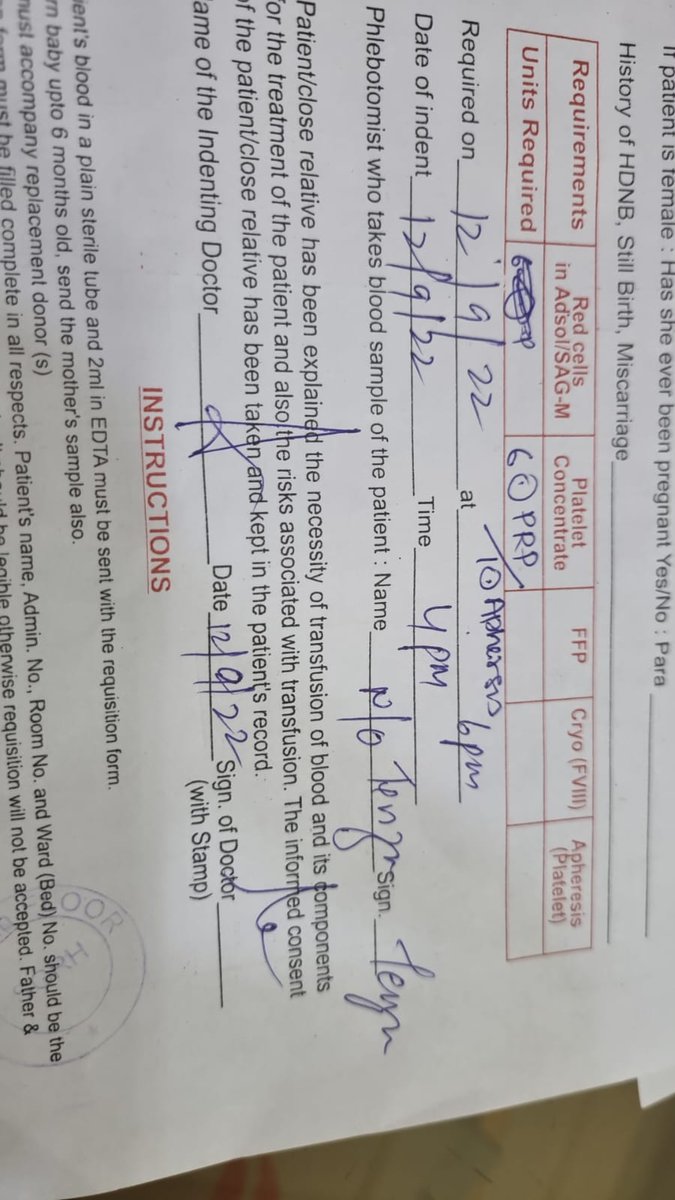 If patient is female : Has she ever been pregnant Yes/No : Para
History of HDNB, Still Birth, Miscarriage
Requirements Red cells in Adsol/SAG-M Platelet Concentrate FFP Cryo (FVIII) Apheresis (Platelet)
Units Required 6 PRP
Apheresis
Required on 12/9/22 at 6pm
Date of indent 12/9/22 Time 4pm
Phlebotomist who takes blood sample of the patient : Name Sign.
Patient/close relative has been explained the necessity of transfusion of blood and its components
for the treatment of the patient and also the risks associated with transfusion. The informed consent
of the patient/close relative has been taken and kept in the patient's record.
ame of the Indenting Doctor Date 12/9/22 Sign. of Doctor
(with Stamp)
INSTRUCTIONS
ient's blood in a plain sterile tube and 2ml in EDTA must be sent with the requisition form.
rn baby upto 6 months old, send the mother's sample also.
must accompany replacement donor (s)
form must be filled complete in all respects. Patient's name, Admin. No., Room No. and Ward (Bed) No. should be the
should be legible otherwise requisition will not be accepted. Father &
OOR